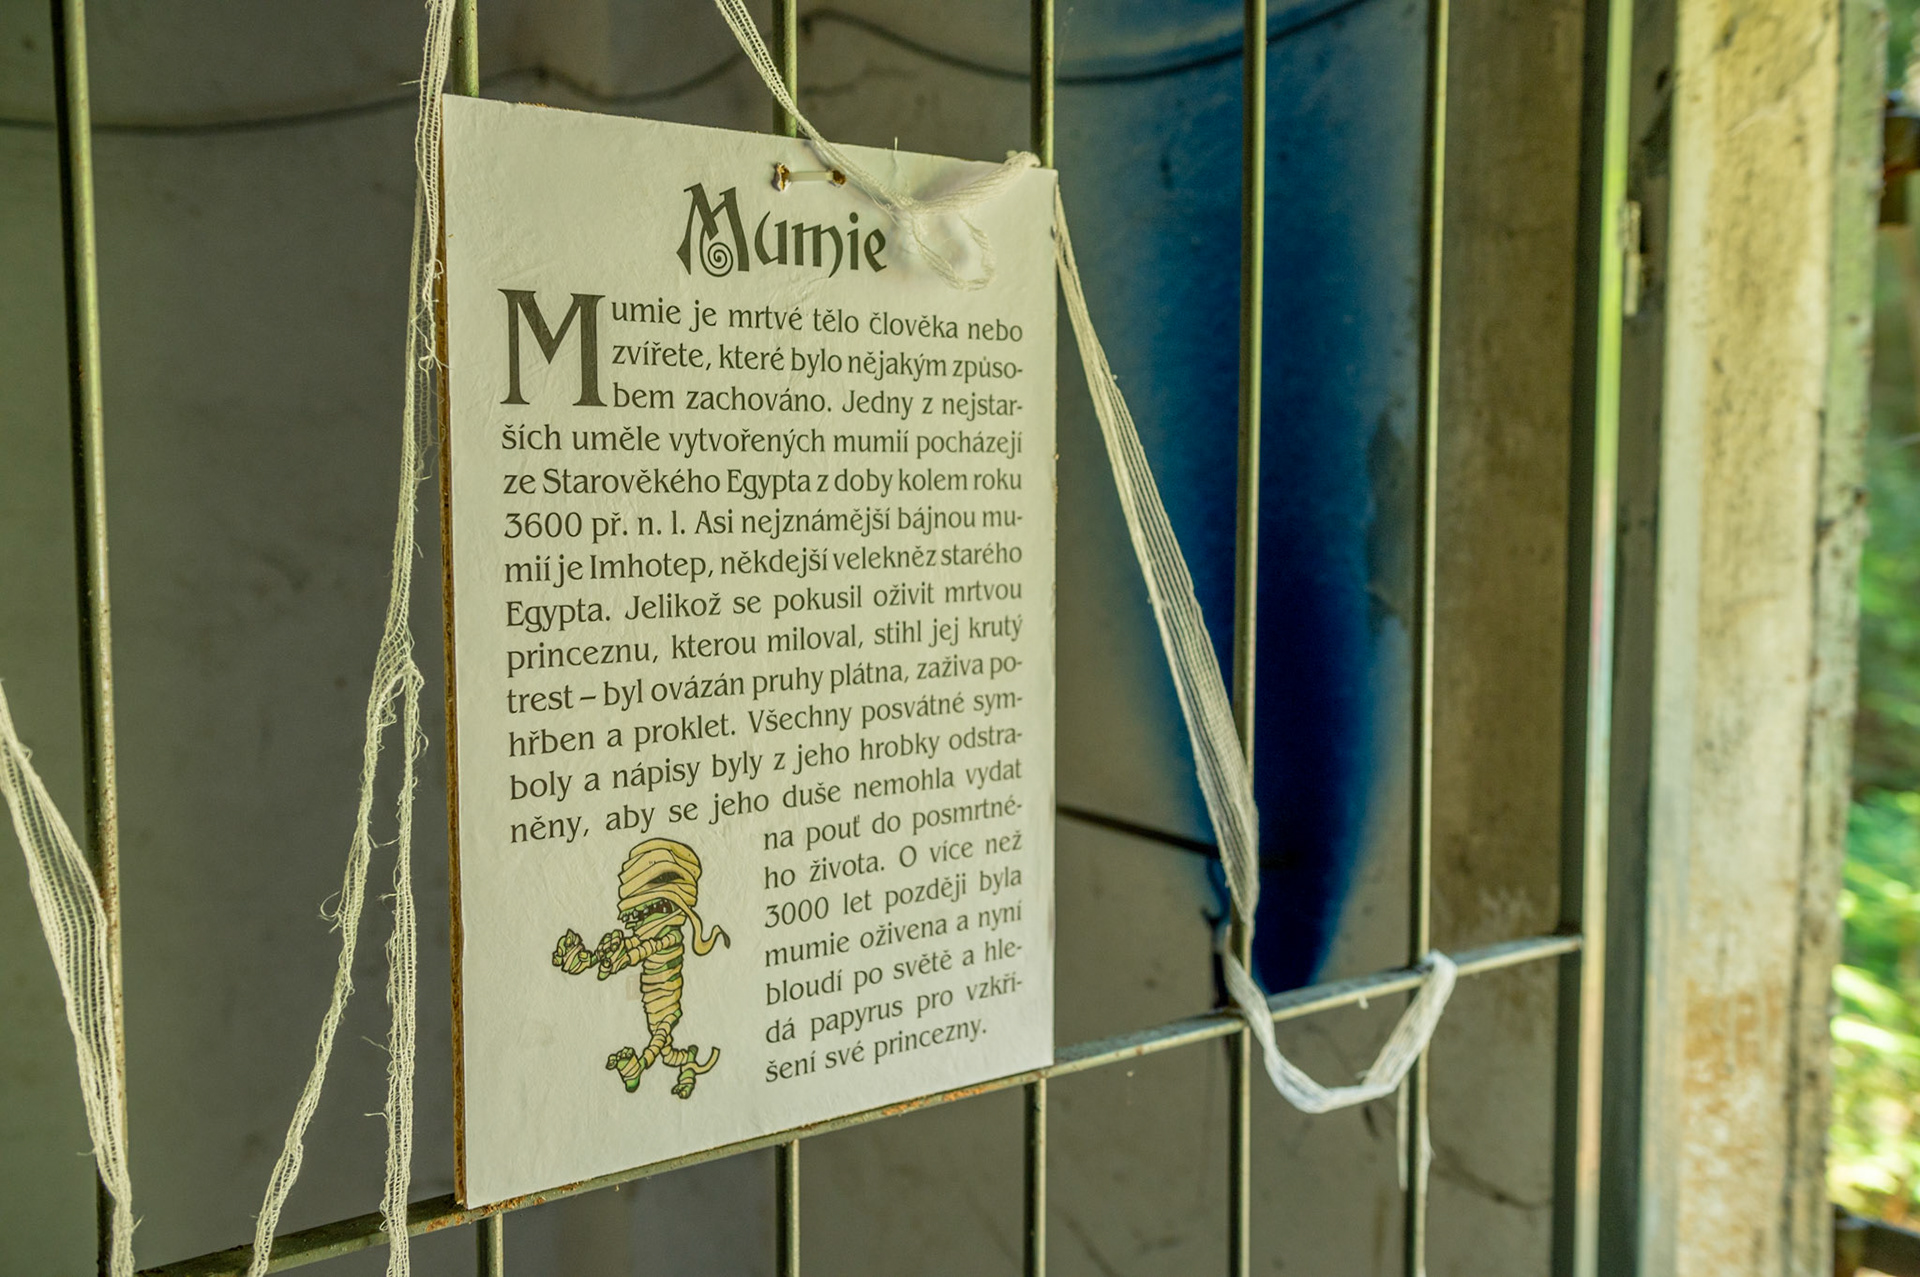 Mumie
Mumie je mrtvé tělo člověka nebo
zvířete, které bylo nějakým způso-
bem zachováno. Jedny z nejstar-
ších uměle vytvořených mumií pocházejí
ze Starověkého Egypta z doby kolem roku
3600 př. n. l. Asi nejznámější bájnou mu-
mií je Imhotep, někdejší velekněz starého
Egypta. Jelikož se pokusil oživit mrtvou
princeznu, kterou miloval, stihl jej krutý
trest – byl ovázán pruhy plátna, zaživa po-
hřben a proklet. Všechny posvátné sym-
boly a nápisy byly z jeho hrobky odstra-
něny, aby se jeho duše nemohla vydat
na pouť do posmrtné-
ho života. O více než
3000 let později byla
mumie oživena a nyní
bloudí po světě a hle-
dá papyrus pro vzkří-
šení své princezny.